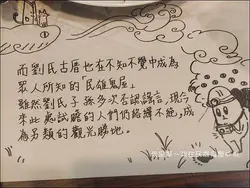 而劉氏古厝也在不知不覺中成為
眾人所知的「民雄鬼屋」
雖然劉氏子孫多次否認謠言,現今
來此處試膽的人們仍絡繹不絕,成
為另類的觀光勝地。